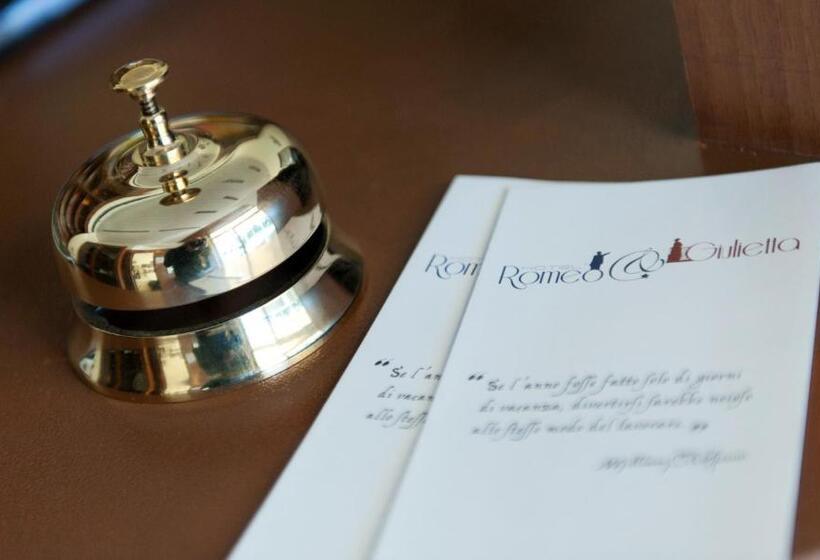 Rom
Romeo & Giulietta
“ Se l'an
di vacan
alle stess
“ Se l'anno fosse fatto solo di giorni
di vacanza, divertirsi sarebbe noioso
allo stesso modo del lavorare. ”